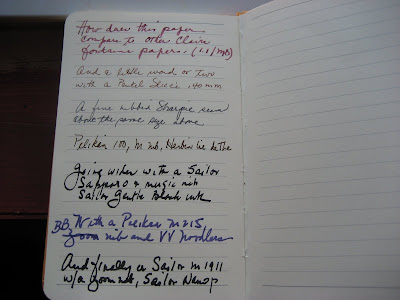 How does this paper
compare to other Claire
fontaine papers. (1.1/MB)
And a little word or two
with a Pentel Slicci .40mm
A fine nibbed Sharpie seen
about the same size above
Pelikan 100, M nib, Herbin lie de the
Going wider with a Sailor
Sapporo & music nib
Sailor Gentle Black ink
BB, With a Pelikan M215,
zoom nib and VV Nombers
And finally a Sailor M 1911
w/a zoom nib, Sailor